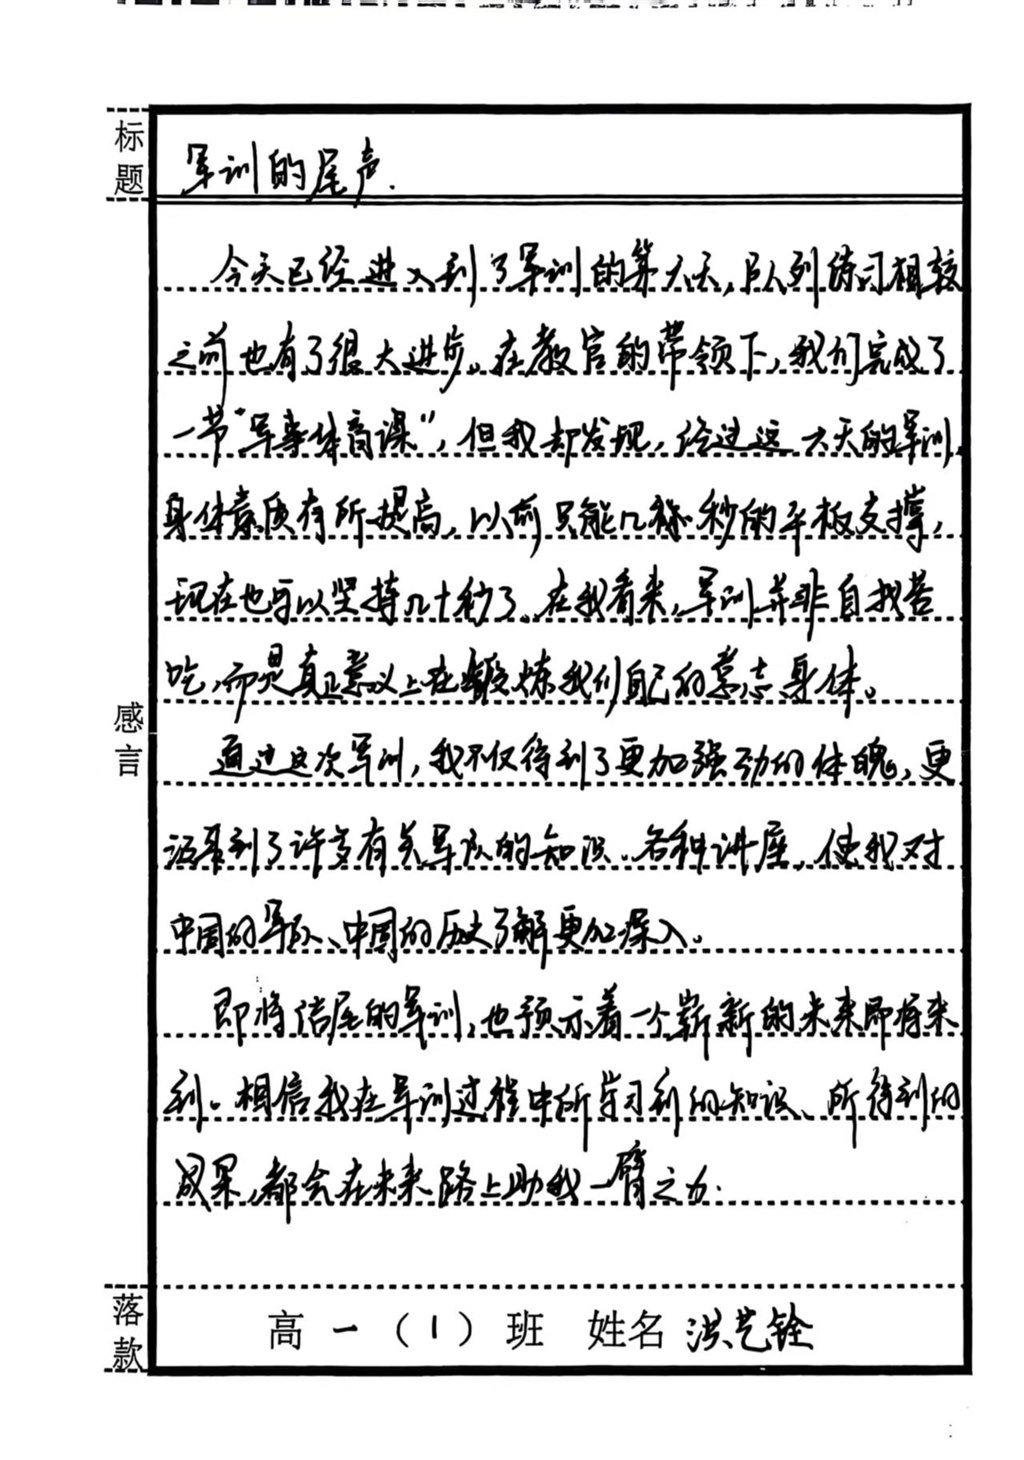 标题
军训的尾声.
今天已经进入到了军训的第六天，队列练习相较
之前也有了很大进步。在教官的带领下，我们完成了
一节“军事体育课”，但我却发现，经过这六天的军训，
身体素质有所提高，以前只能几秒的平板支撑，
现在也可以坚持几十秒了。在我看来，军训并非自找苦
吃，而是真正意义上在锻炼我们自己的意志身体。
感言
通过这次军训，我不仅得到了更加强劲的体魄，更
了许多有关军队的知识。各种讲座，使我对
中国的军队、中国的历史了解更加深入。
即将结尾的军训，也预示着一个崭新的未来即将来
到。相信我在军训过程中所学习到的知识、所得到的
成果，都会在未来路上助我一臂之力.
落款
高一（1）班 姓名 洪艺铨